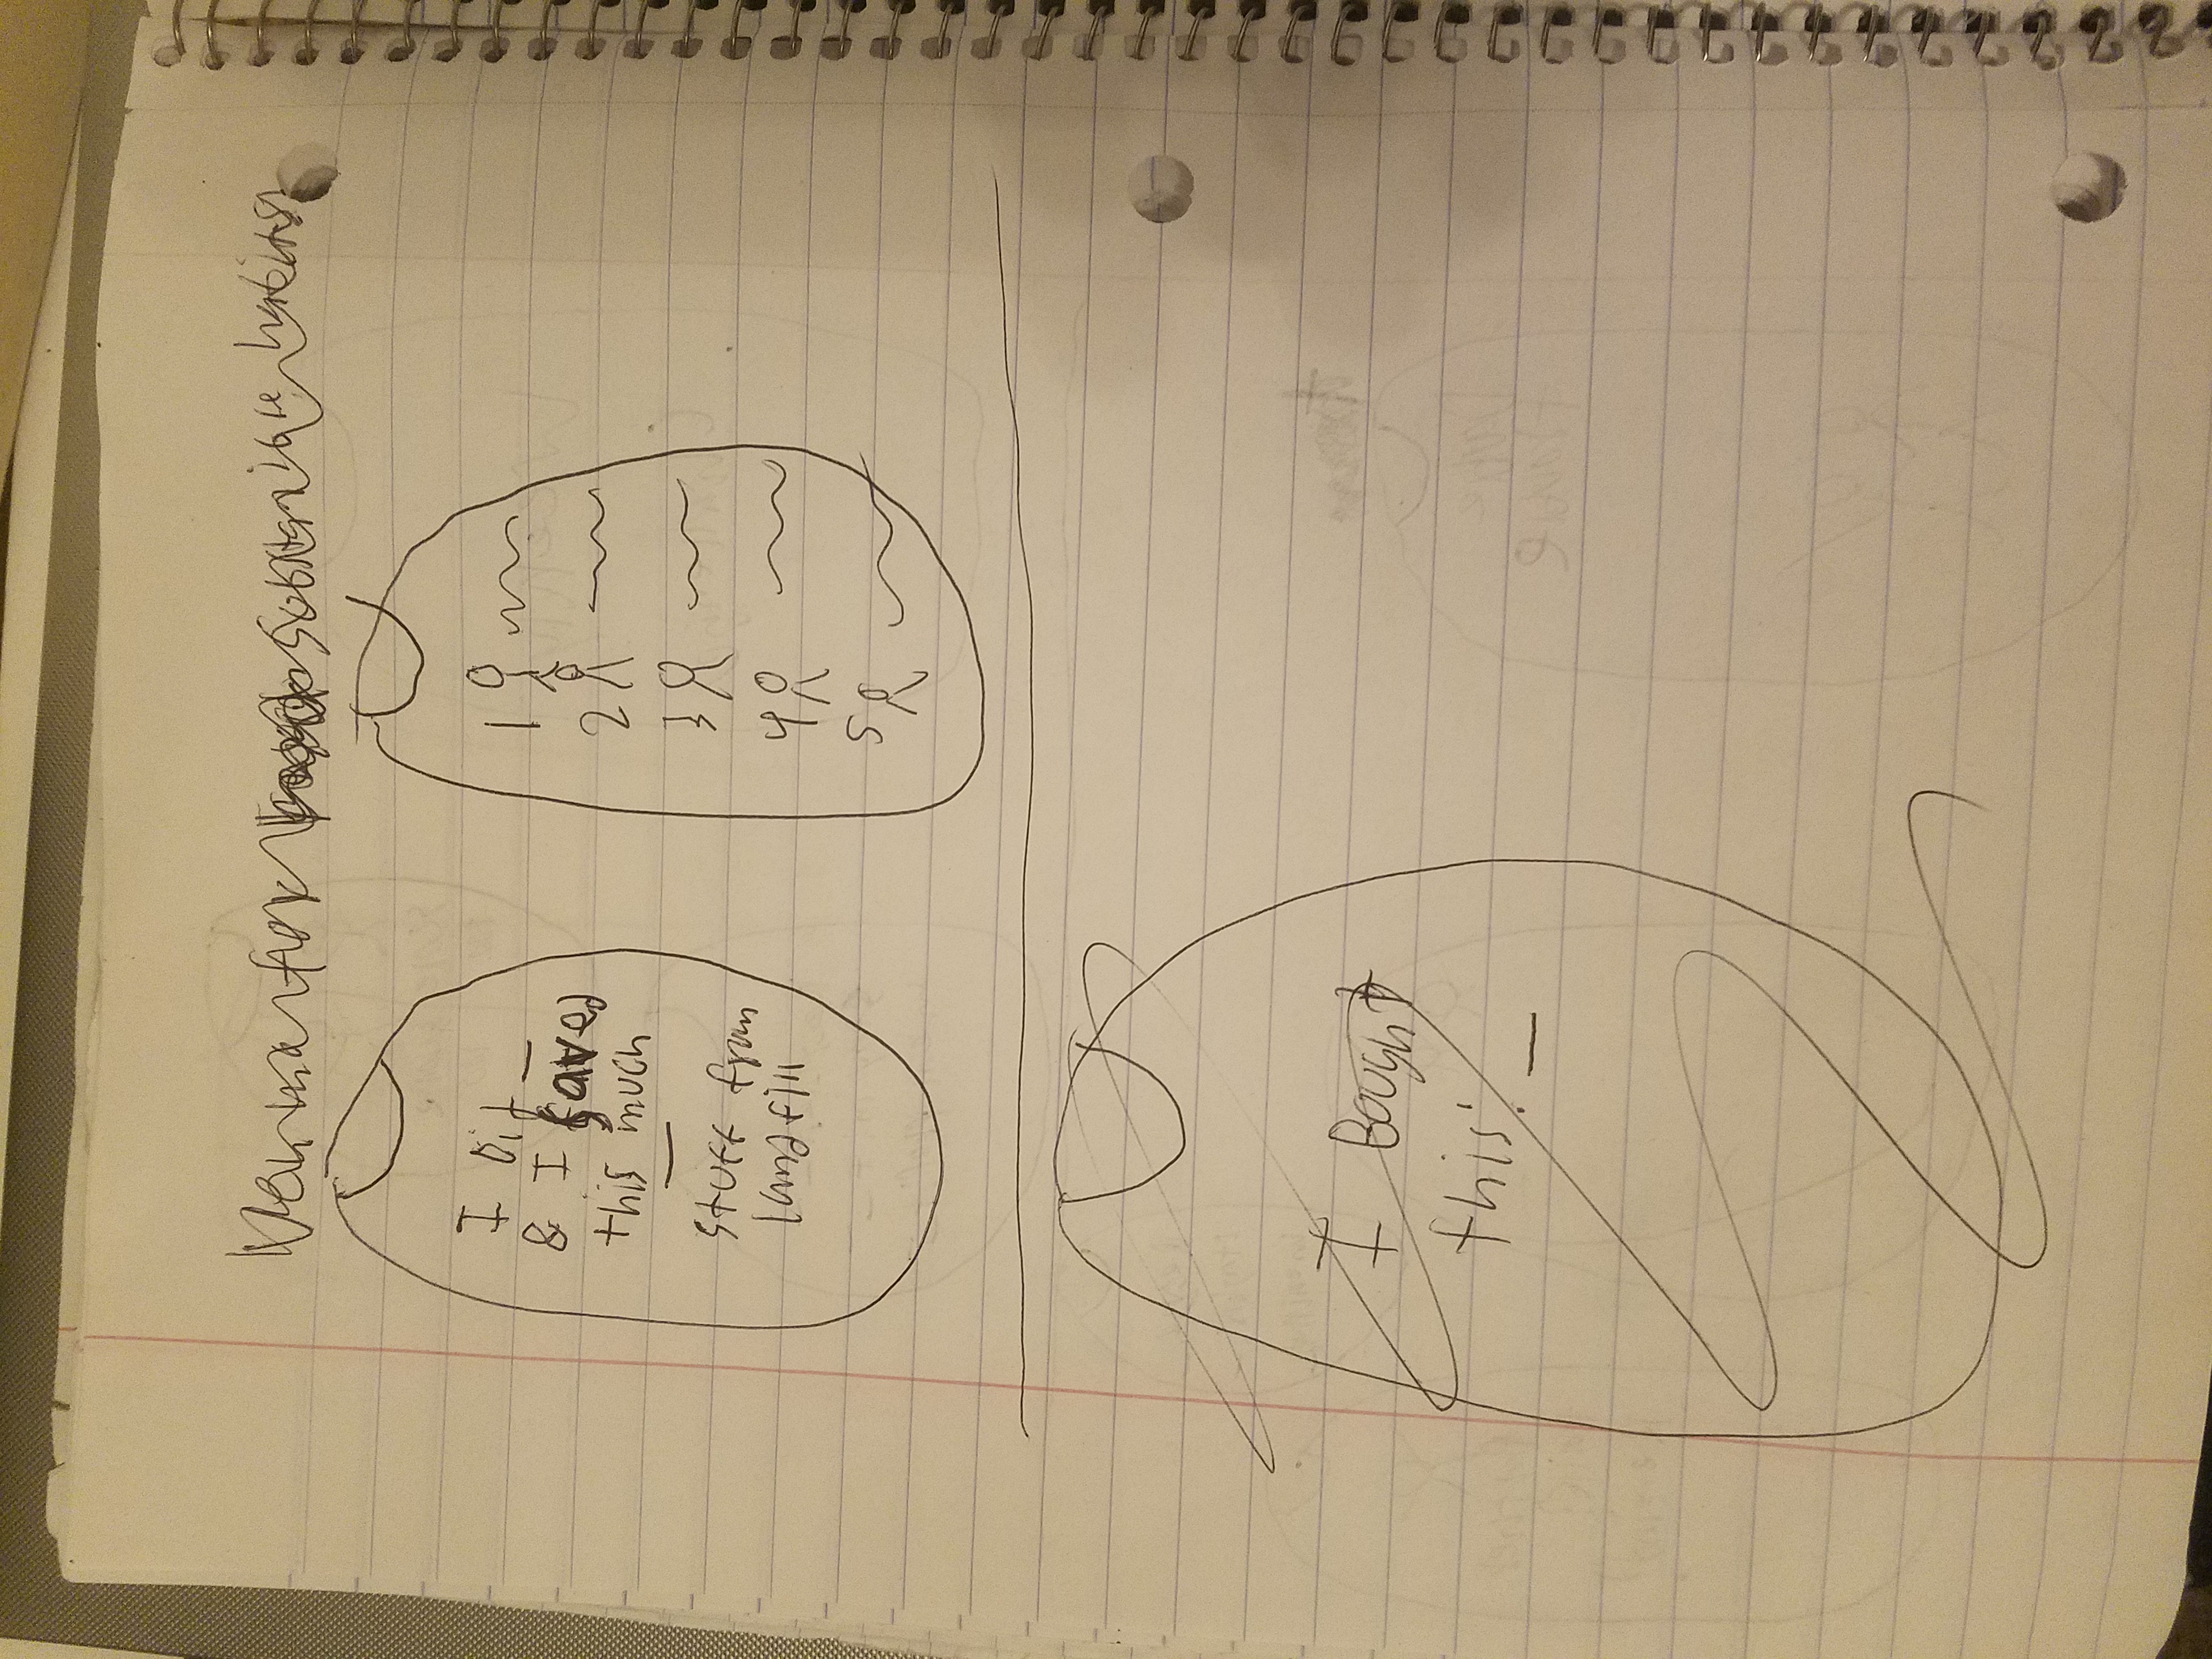 Venmo for sustainible habits
I Did _
& I saved
this much
—
stuff from
landfill
1
2
3
4
5
I Bought
this: _